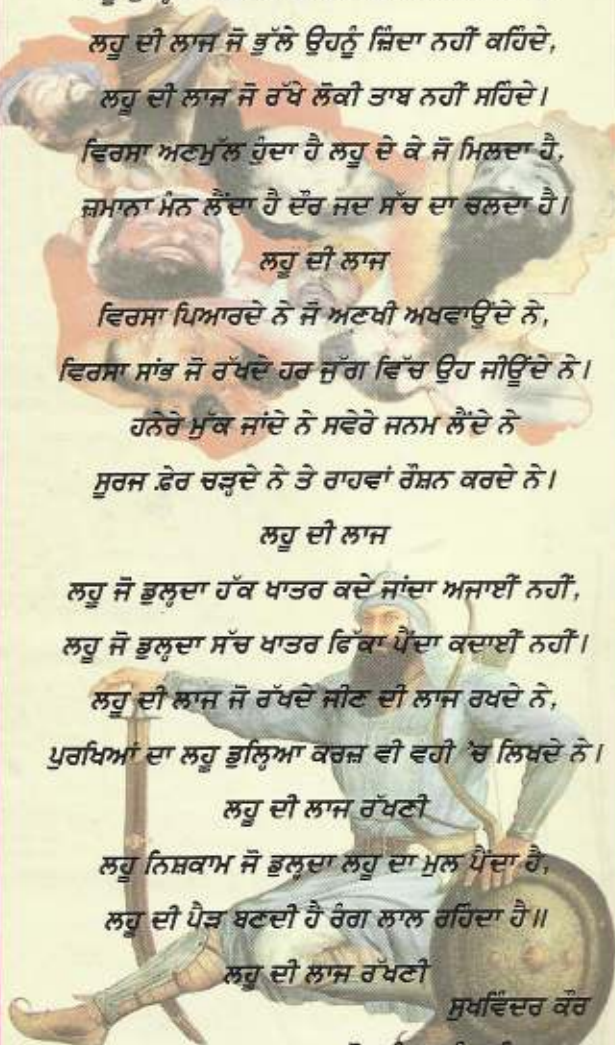 ਲਹੂ ਦੀ ਲਾਜ ਜੋ ਭੁੱਲੇ ਉਹਨੂੰ ਜ਼ਿੰਦਾ ਨਹੀਂ ਕਹਿੰਦੇ,
ਲਹੂ ਦੀ ਲਾਜ ਜੋ ਰੱਖੇ ਲੋਕੀ ਤਾਬ ਨਹੀਂ ਸਹਿੰਦੇ।
ਵਿਰਸਾ ਅਣਮੁੱਲ ਹੁੰਦਾ ਹੈ ਲਹੂ ਦੇ ਕੇ ਜੋ ਮਿਲਦਾ ਹੈ,
ਜ਼ਮਾਨਾ ਮੰਨ ਲੈਂਦਾ ਹੈ ਦੌਰ ਜਦ ਸੱਚ ਦਾ ਚਲਦਾ ਹੈ।
ਲਹੂ ਦੀ ਲਾਜ
ਵਿਰਸਾ ਪਿਆਰਦੇ ਨੇ ਜੋ ਅਣਖੀ ਅਖਵਾਉਂਦੇ ਨੇ,
ਵਿਰਸਾ ਸਾਂਭ ਜੋ ਰੱਖਦੇ ਹਰ ਜੁੱਗ ਵਿੱਚ ਉਹ ਜੀਊਂਦੇ ਨੇ।
ਹਨੇਰੇ ਮੁੱਕ ਜਾਂਦੇ ਨੇ ਸਵੇਰੇ ਜਨਮ ਲੈਂਦੇ ਨੇ
ਸੂਰਜ ਫ਼ੇਰ ਚੜ੍ਹਦੇ ਨੇ ਤੇ ਰਾਹਵਾਂ ਰੌਸ਼ਨ ਕਰਦੇ ਨੇ।
ਲਹੂ ਦੀ ਲਾਜ
ਲਹੂ ਜੋ ਡੁਲ੍ਹਦਾ ਹੱਕ ਖਾਤਰ ਕਦੇ ਜਾਂਦਾ ਅਜਾਈਂ ਨਹੀਂ,
ਲਹੂ ਜੋ ਡੁਲ੍ਹਦਾ ਸੱਚ ਖਾਤਰ ਫਿੱਕਾ ਪੈਂਦਾ ਕਦਾਈਂ ਨਹੀਂ।
ਲਹੂ ਦੀ ਲਾਜ ਜੋ ਰੱਖਦੇ ਜੀਣ ਦੀ ਲਾਜ ਰਖਦੇ ਨੇ,
ਪੁਰਖਿਆਂ ਦਾ ਲਹੂ ਡੁਲ੍ਹਿਆ ਕਰਜ਼ ਵੀ ਵਹੀ 'ਚ ਲਿਖਦੇ ਨੇ।
ਲਹੂ ਦੀ ਲਾਜ ਰੱਖਣੀ
ਲਹੂ ਨਿਸ਼ਕਾਮ ਜੋ ਡੁਲ੍ਹਦਾ ਲਹੂ ਦਾ ਮੁਲ ਪੈਂਦਾ ਹੈ,
ਲਹੂ ਦੀ ਪੈੜ ਬਣਦੀ ਹੈ ਰੰਗ ਲਾਲ ਰਹਿੰਦਾ ਹੈ॥
ਲਹੂ ਦੀ ਲਾਜ ਰੱਖਣੀ
ਸੁਖਵਿੰਦਰ ਕੌਰ